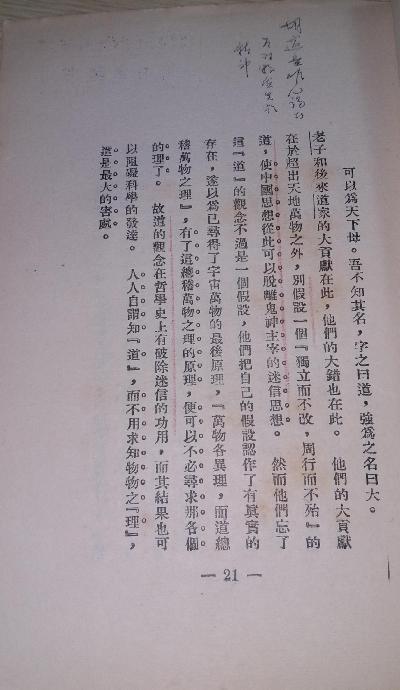 可以爲天下母。吾不知其名，字之曰道，强爲之名曰大。
老子和後來道家的大貢獻在此，他們的大錯也在此。他們的大貢獻
在於超出天地萬物之外，別假設一個『獨立而不改，周行而不殆』的
道，使中國思想從此可以脫離鬼神主宰的迷信思想。然而他們忘了
這『道』的觀念不過是一個假設，他們把自己的假設認作了有眞實的
存在，遂以爲已尋得了宇宙萬物的最後原理，『萬物各異理，而道總
稽萬物之理』，有了這總稽萬物之理的原理，便可以不必尋求那各個
的理了。故道的觀念在哲學史上有破除迷信的功用，而其結果也可
以阻礙科學的發達。人人自謂知『道』，而不用求知物物之『理』，
這是最大的害處。
— 21 —